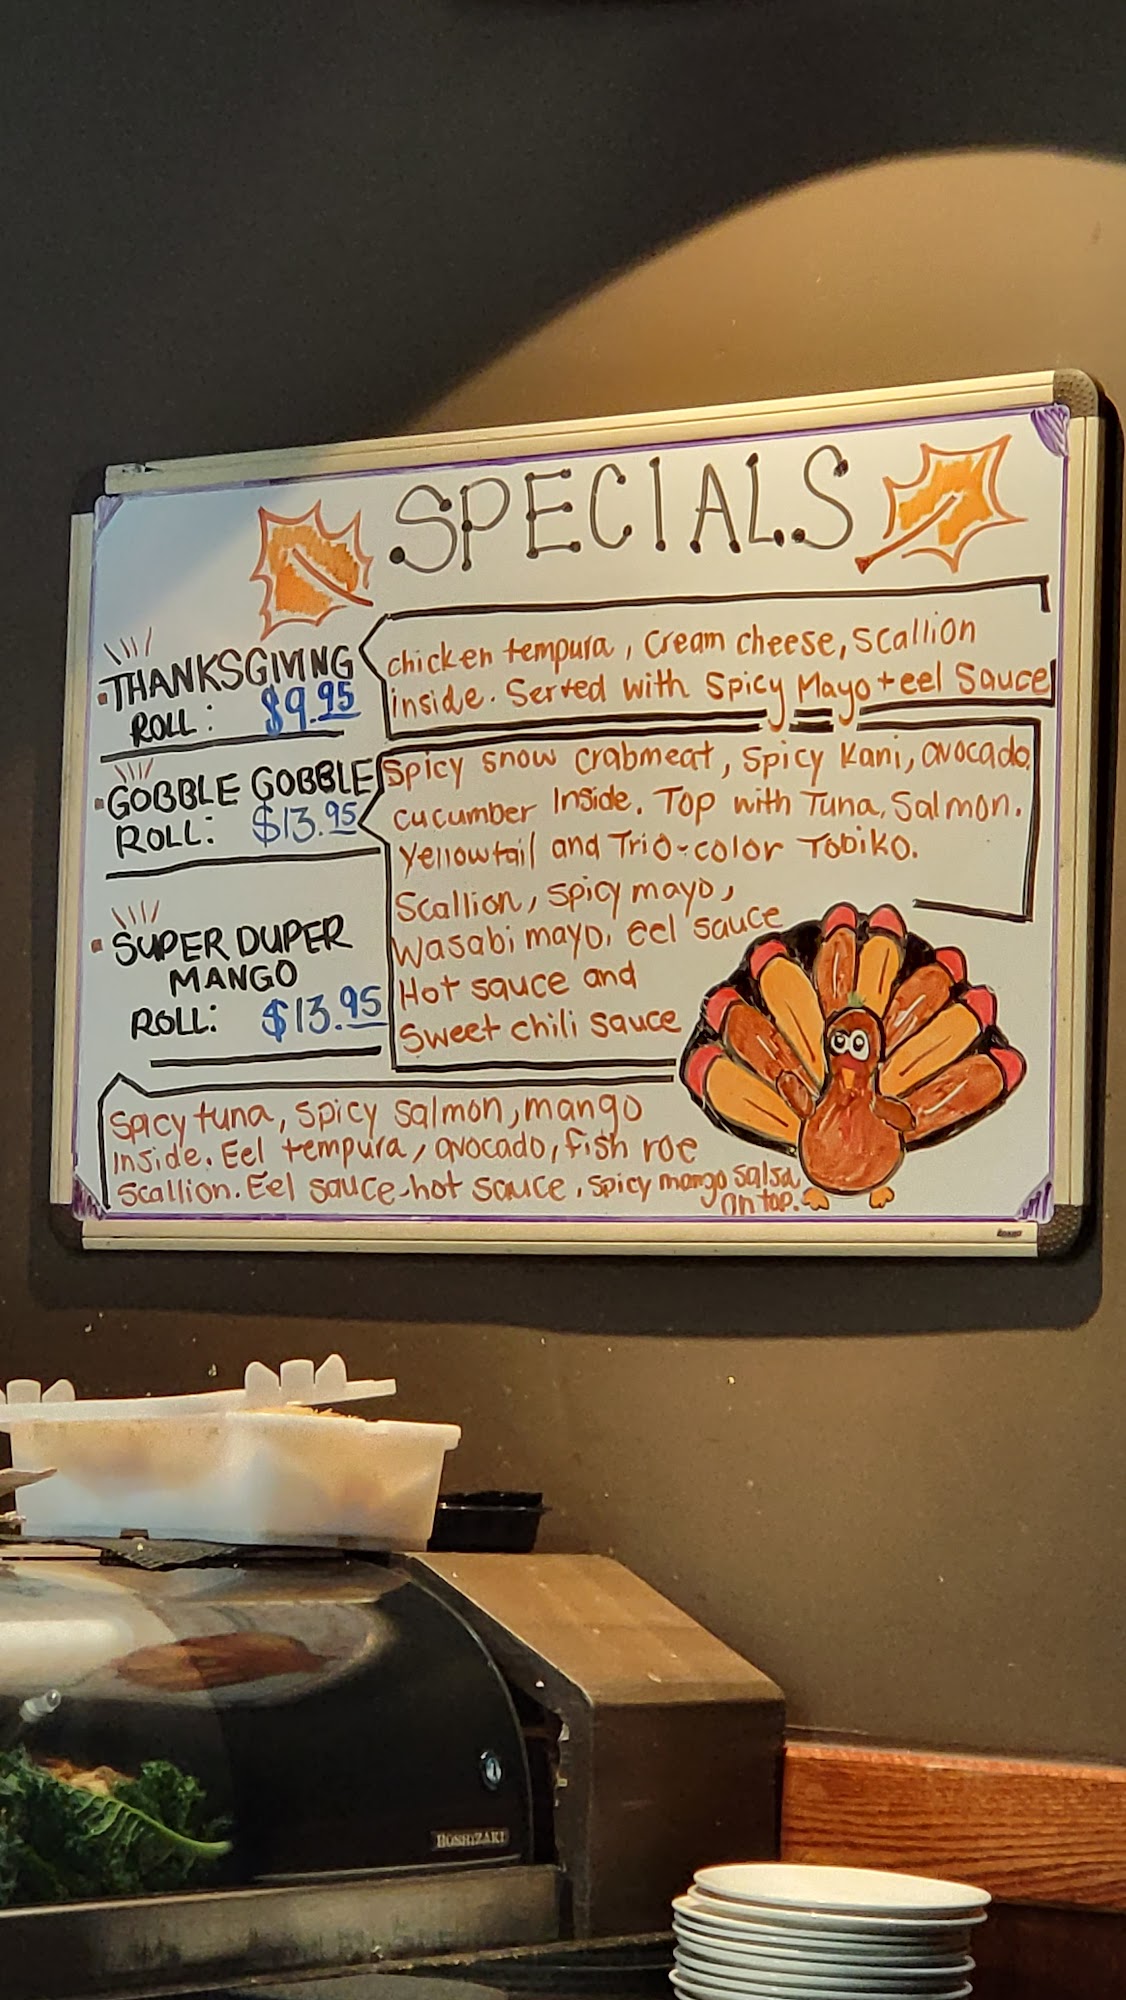 SPECIALS
THANKSGIVING
ROLL: $9.95
chicken tempura, cream cheese, scallion
inside. Served with Spicy Mayo + eel Sauce
GOBBLE GOBBLE
ROLL: $13.95
Spicy snow crabmeat, spicy kani, avocado,
cucumber inside. Top with Tuna, Salmon.
Yellowtail and Trio-color Tobiko.
Scallion, spicy mayo,
Wasabi mayo, eel sauce
Hot sauce and
Sweet chili sauce
SUPER DUPER
MANGO
ROLL: $13.95
Spicy tuna, spicy salmon, mango
inside. Eel tempura, avocado, fish roe
Scallion. Eel sauce-hot sauce, spicy mango salsa
on top.
HOSHIZAKI